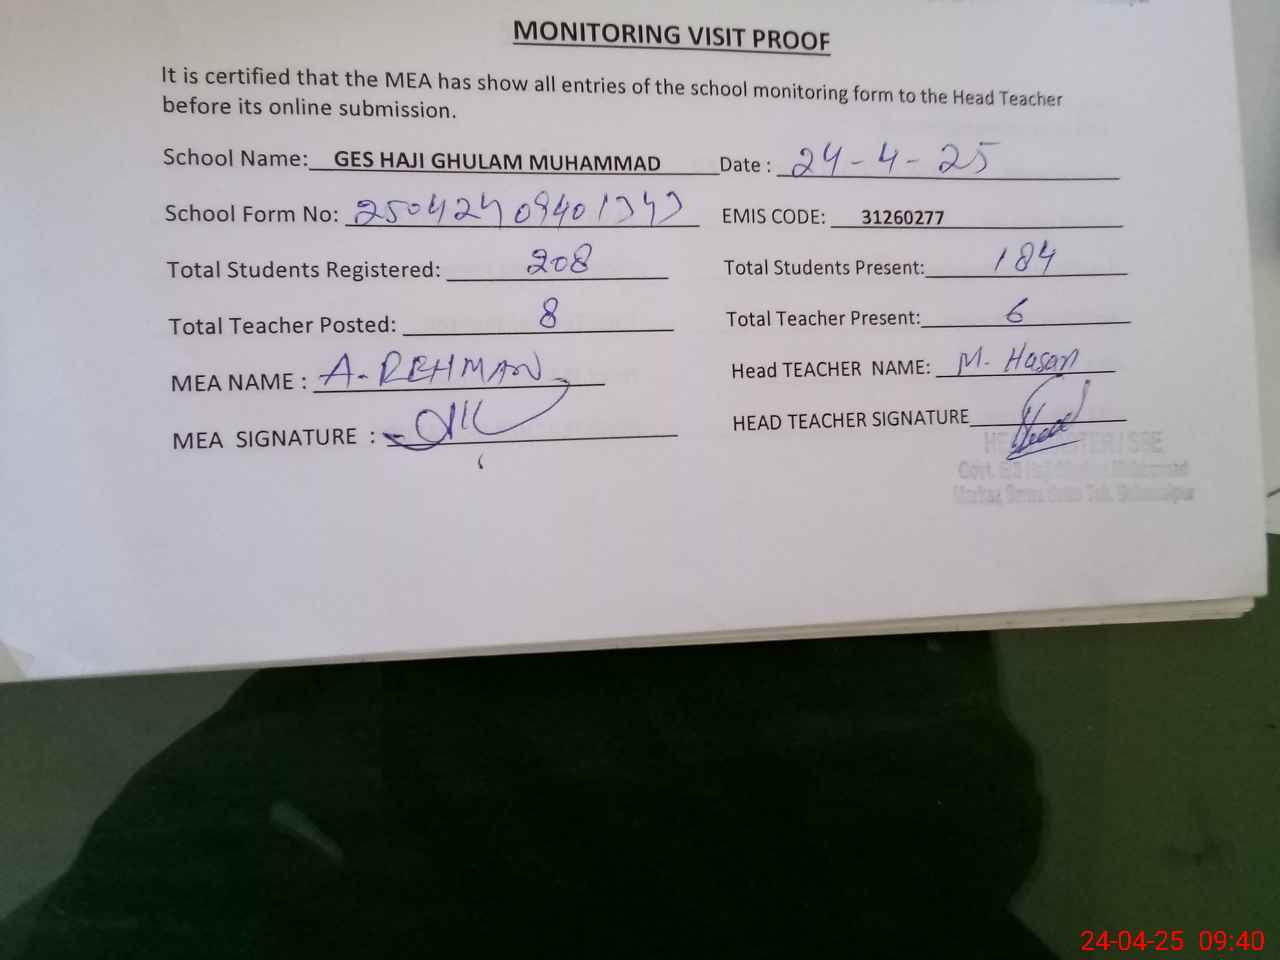 MONITORING VISIT PROOF
It is certified that the MEA has show all entries of the school monitoring form to the Head Teacher
before its online submission.
School Name: GES HAJI GHULAM MUHAMMAD Date : 24-4-25
School Form No: EMIS CODE: 31260277
Total Students Registered: 208 Total Students Present: 184
Total Teacher Posted: 8 Total Teacher Present: 6
MEA NAME : A. REHMAN Head TEACHER NAME: M. Hasan
MEA SIGNATURE : HEAD TEACHER SIGNATURE
24-04-25 09:40